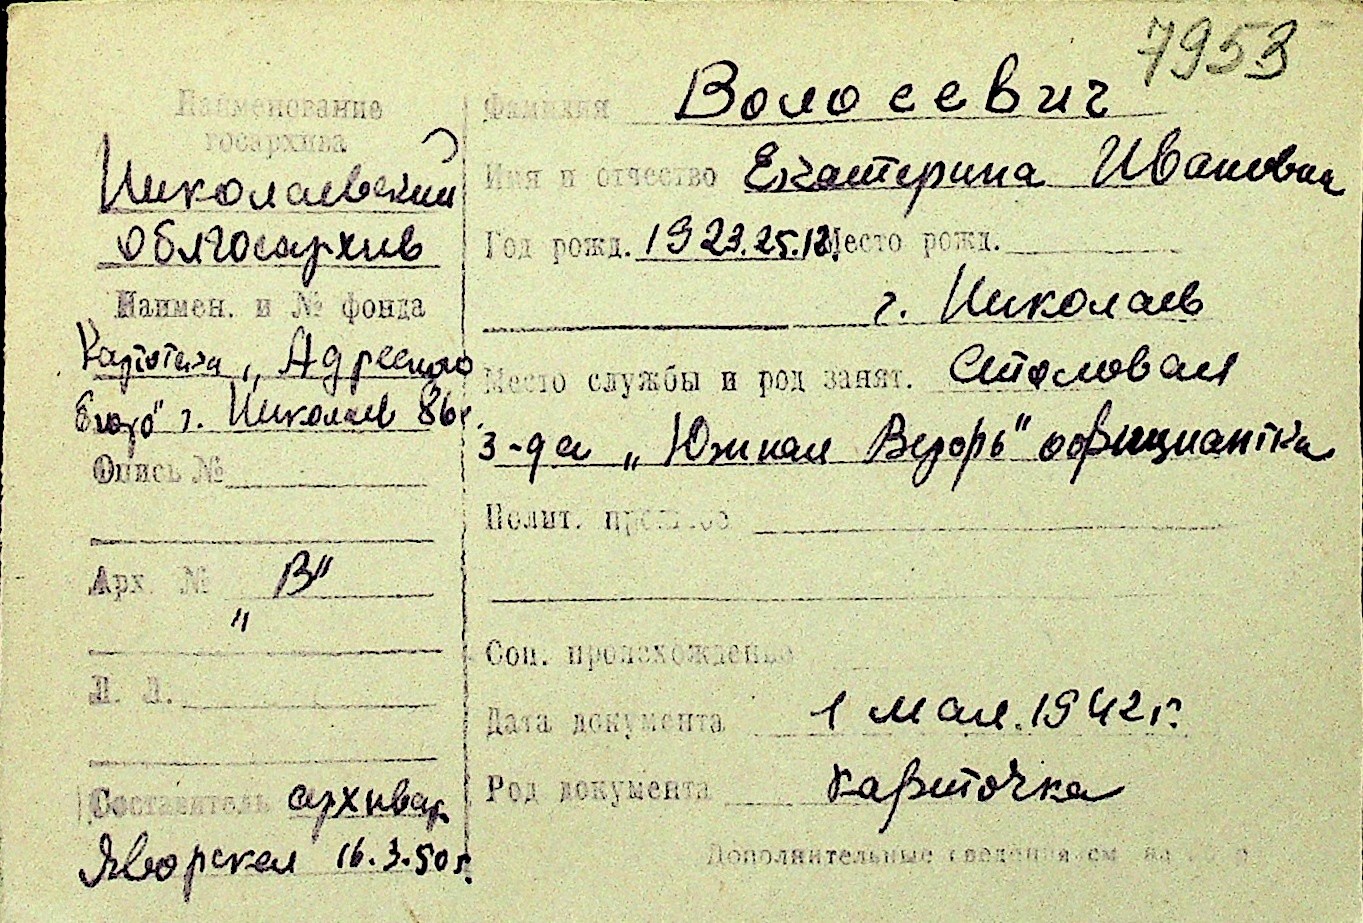 7953
Наименование
госархива
Николаевский
облгосархив
Наимен. и № фонда
Картотека „Адресного
бюро" г. Николаев 86г.
Опись №
Арх. № „В"
Л. Л.
Составитель архивар.
Яворская 16.3.50г.
Фамилия Волосевич
Имя и отчество Екатерина Ивановна
Год рожд. 1923.25.12. Место рожд.
г. Николаев
Место службы и род занят. Столовая
з-да „Южная Верфь" официантка
Полит. прошлое
Соц. происхождение
Дата документа 1 мая 1942 г.
Род документа карточка
Дополнительные сведения см на